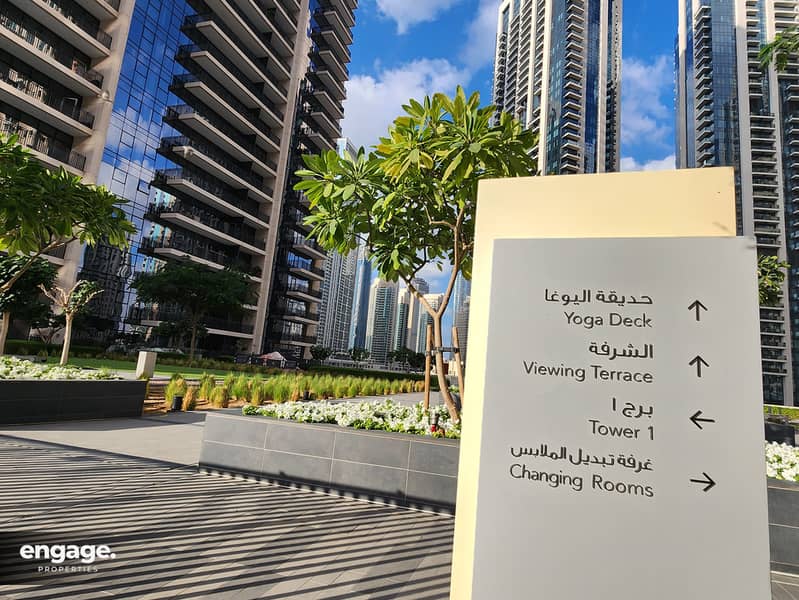 حديقة اليوغا
Yoga Deck
الشرفة
Viewing Terrace
برج ١
Tower 1
غرفة تبديل الملابس
Changing Rooms
engage.
PROPERTIES